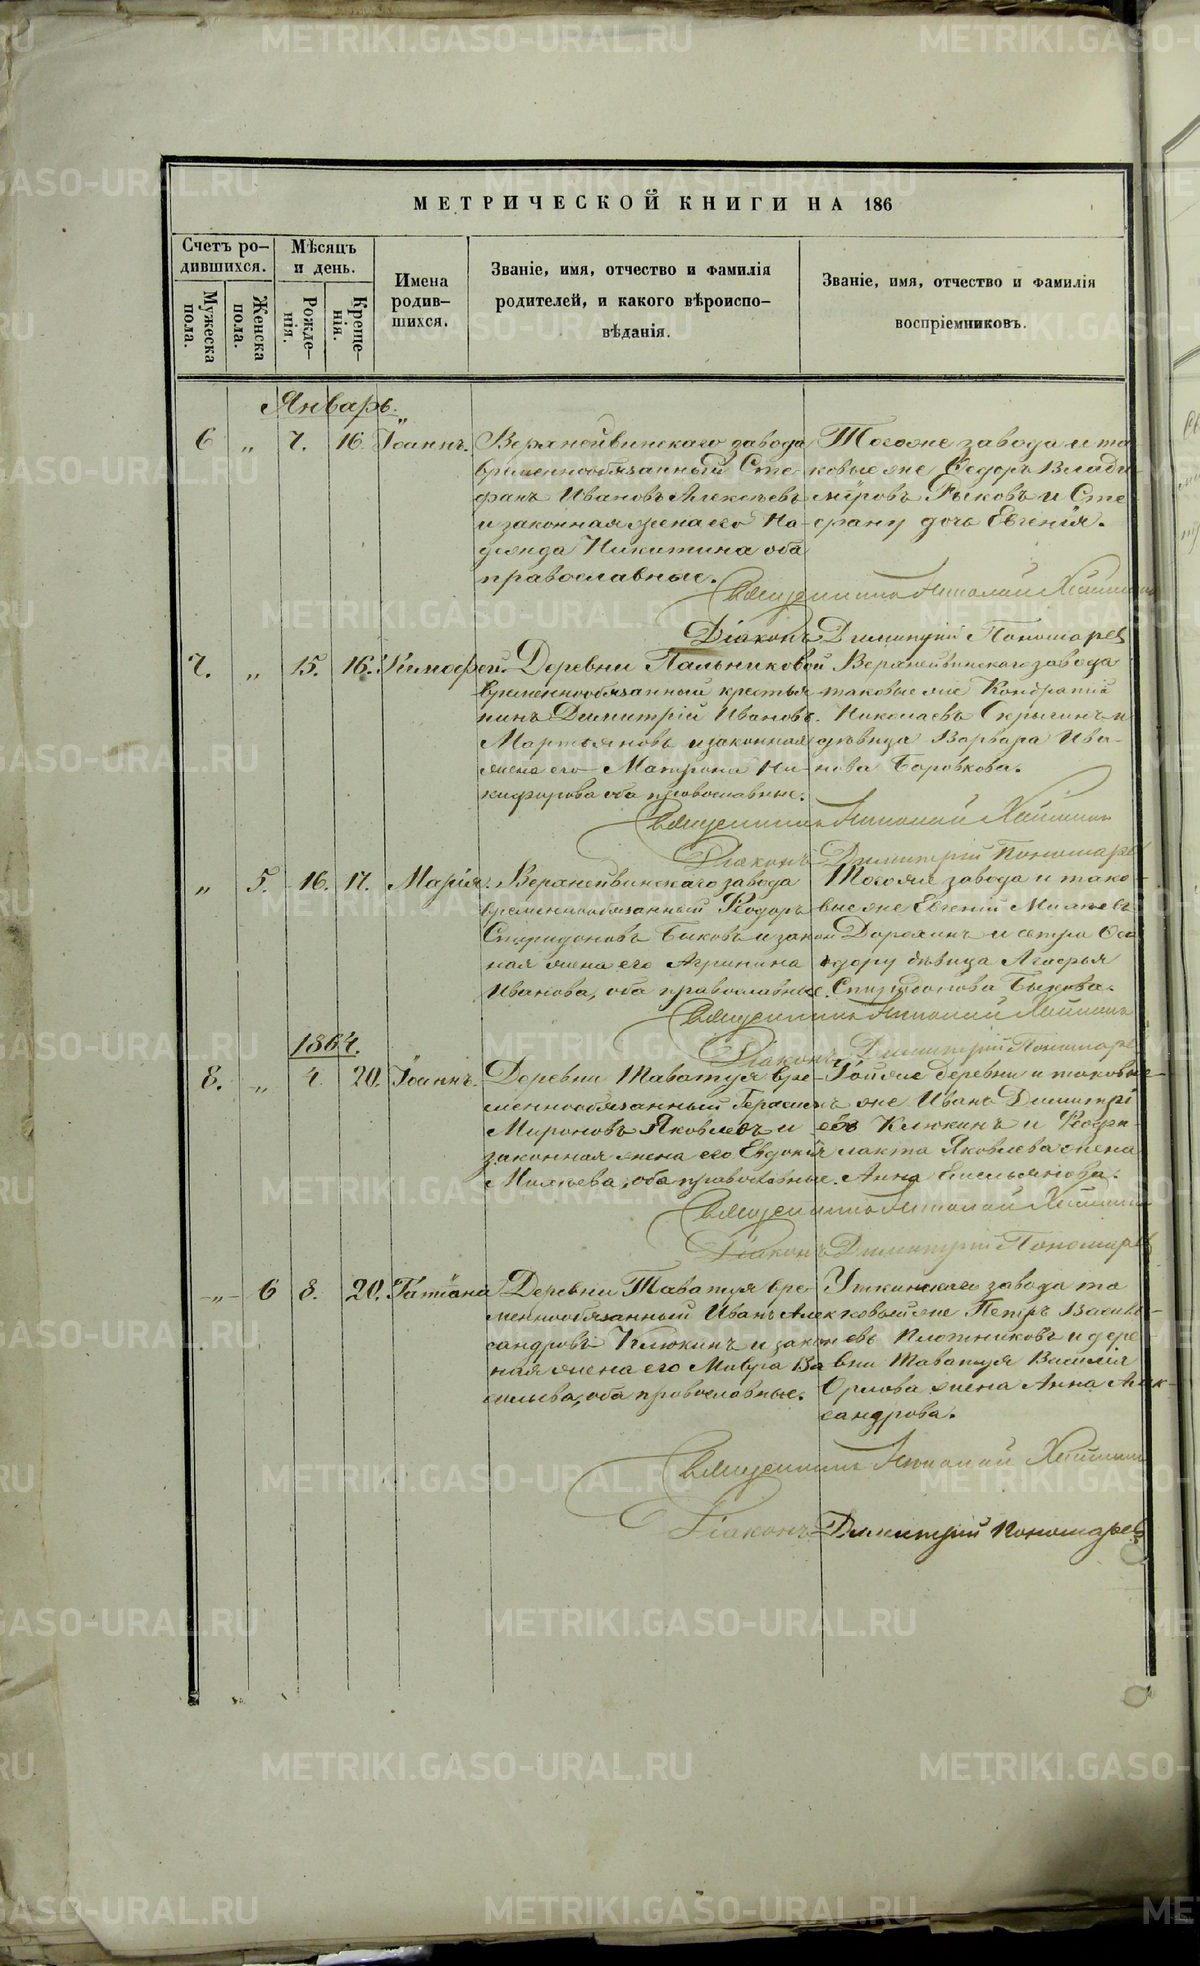 МЕТРИЧЕСКОЙ КНИГИ НА 186
Счетъ ро-
дившихся.
Мужеска
пола.
Женска
пола.
Мѣсяцъ
и день.
Рожде-
нія.
Креще-
нія.
Имена
родив-
шихся.
Званіе, имя, отчество и фамилія
родителей, и какого вѣроиспо-
вѣданія.
Званіе, имя, отчество и фамилія
воспріемниковъ.
Январь.
6 " 7. 16. Іоаннъ.
Верхнейвинскаго завода
временнообязанный Сте-
фанъ Ивановъ Алексѣевъ
и законная жена его На-
дежда Никитина оба
православные.
Тогоже завода и та
ковые же Ѳедоръ Влади
міровъ Рыковъ и Сте
фану дочь Евгенія.
Священникъ Николай
Діаконъ Димитрій Пономарев
7. " 15. 16. Тимофей.
Деревни Пальниковой
временнообязанный крестья
нинъ Димитрій Ивановъ
Мартьяновъ и законная
жена его Матрона Ни-
кифорова оба православные.
Верхнейвинскаго завода
таковые же Кондратій
Николаевъ Скрыгинъ и
дѣвица Варвара Ива-
нова Боровкова.
Священникъ Николай
Діаконъ Димитрій Пономарев
" 5. 16. 17. Марія.
Верхнейвинскаго завода
временнообязанный Ѳеодоръ
Спиридоновъ Быковъ и закон
ная жена его Агрипина
Иванова, оба православные.
Тогоже завода и тако-
вые же Евгеній Михѣевъ
Дорохинъ и сетра Ѳео
дору дѣвица Агафья
Спиридонова Быкова.
Священникъ Николай
Діаконъ Димитрій Пономарев
1864.
8. " 4. 20. Іоаннъ.
Деревни Таватуя вре-
меннообязанный Герасимъ
Мироновъ Яковлевъ и
законная жена его Евдокія
Михѣева, оба православные.
Тойже деревни и таковые
же Иванъ Димитрі
евъ Клюкинъ и Ѳеофи-
лакта Яковлева жена
Анна Емельянова.
Священникъ Николай
Діаконъ Димитрій Пономарев
" 6 8. 20. Татіана
Деревни Таватуя вре
меннообязанный Иванъ Алек
сандровъ Клюкинъ и закон
ная жена его Мавра Ва
сильева, оба православные.
Уткинскаго завода та
ковый же Петръ Василь-
евъ Плотниковъ и дере
вни Таватуя Василія
Орлова жена Анна Алек-
сандрова.
Священникъ Николай
Діаконъ Димитрій Пономаревъ
METRIKI.GASO-URAL.RU